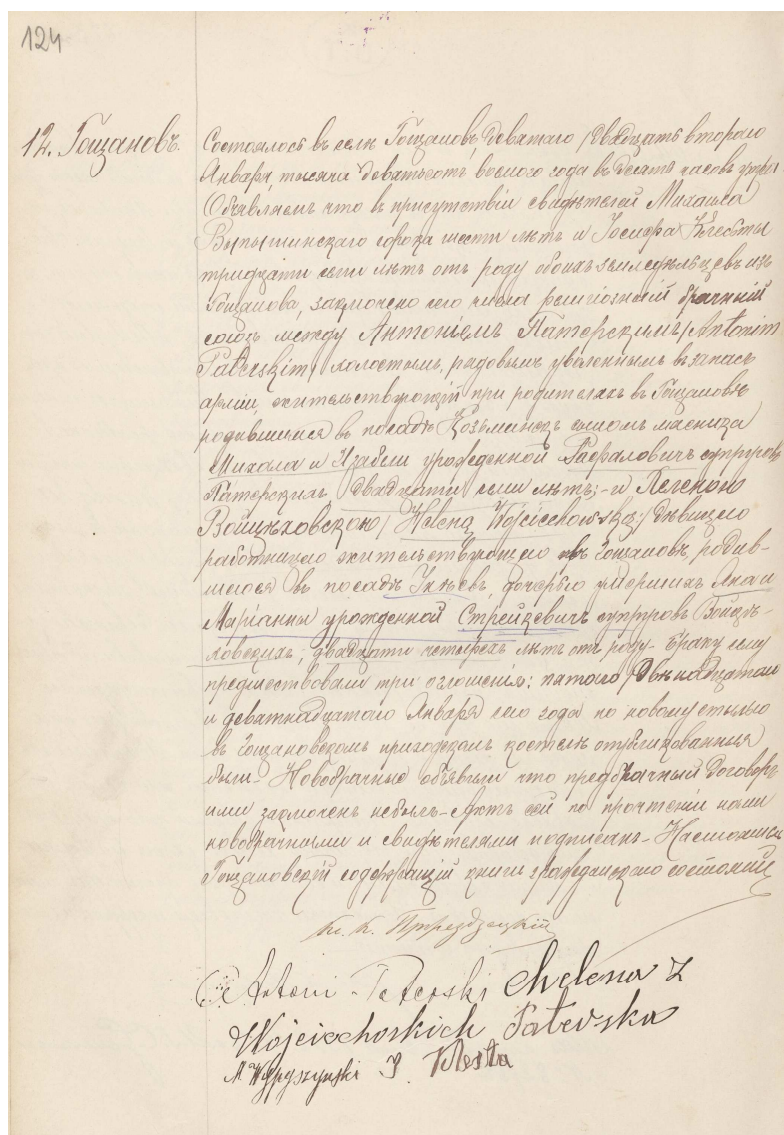 124
12. Гощановъ.
Состоялось въ селѣ Гощановъ девятаго /двадцать втораго
Января, тысяча девятьсотъ восмого года въ десять часовъ утра.
Объявляемъ что въ присутствіи свидѣтелей Михаила
Выпышинскаго сорока шести лѣтъ и Іосифа Клесты
тридцати семи лѣтъ отъ роду обоихъ земледѣльцевъ изъ
Гощанова, заключено сего числа религіозный брачный
союзъ между Антоніемъ Патерскимъ /Antonim
Paterskim/ холостымъ, рядовымъ уволеннымъ въ запасъ
арміи, жительствующій при родителяхъ въ Гощановѣ
родившимся въ посадѣ Козьминекъ сыномъ
Михала и Изабели урожденной Рафаловичъ супруговъ
Патерскихъ, двадцати семи лѣтъ; - и Хеленою
Войцѣховскою /Heleną Wojciechowską/ дѣвицею
работницею жительствующею въ Гощановѣ, родив-
шеюся въ посадѣ, дочерью умершихъ Яна и
Маріанны урожденной Стрейцевичъ супруговъ Войцѣ-
ховскихъ, двадцати четырехъ лѣтъ отъ роду. - Браку сему
предшествовали три оглашенія: пятого /двѣнадцатаго
и девятнадцатаго Января сего года по новому стилю
въ Гощановскомъ приходскомъ костелѣ отпубликованныя
были. - Новобрачные объявили что предбрачный договоръ
ими заключенъ небылъ. - Актъ сей по прочтеніи нами
новобрачными и свидѣтелями подписанъ. - Настоятель
Гощановскій содержащій книги гражданскаго состоянія
Кс. К. Пржездзецкій
Antoni Paterski Chelena z
Wojciechoskich Paterska
M. Wypyszynski J. Klesta